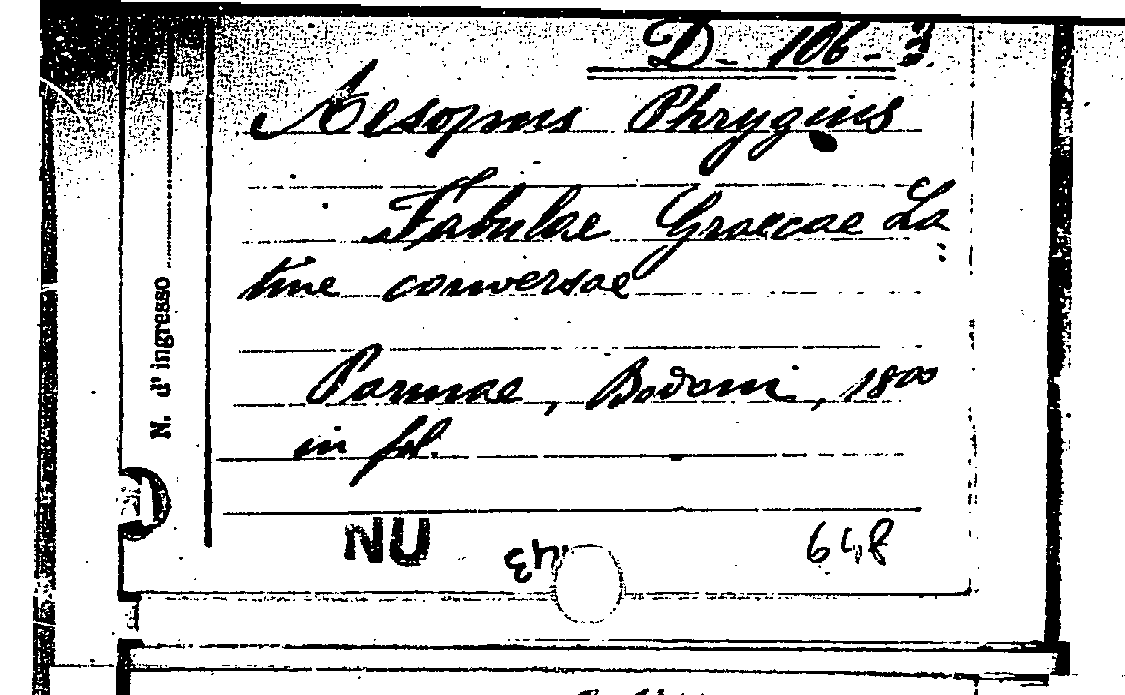 D - 106 - 3.
Aesopus Phrygius
Fabulae Graecae La
tine conversae
Parmae, Bodoni, 1800
in fol.
N. d'ingresso
NU
648